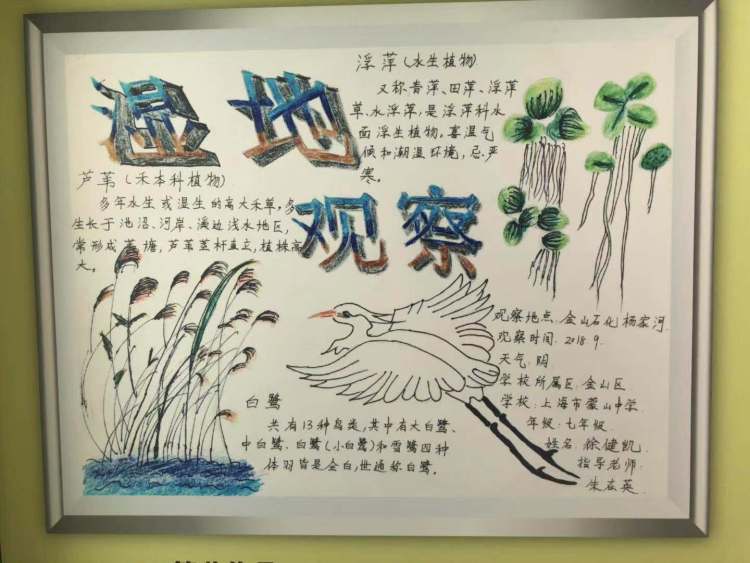 湿地
观察
浮萍(水生植物)
又称青萍、田萍、浮萍
草、水浮萍,是浮萍科水
面浮生植物,喜温气
候和潮湿环境,忌严
寒。
芦苇(禾本科植物)
多年水生或湿生的高大禾草,多
生长于池沼、河岸、溪边浅水地区,
常形成苇塘,芦苇茎秆直立,植株高
大。
白鹭
共有13种鸟类,其中有大白鹭、
中白鹭、白鹭(小白鹭)和雪鹭四种
体羽皆是全白,世通称白鹭。
观察地点:金山石化杨家河
观察时间:2018.9
天气:阴
学校所属区:金山区
学校:上海市蒙山中学
年级:七年级
姓名:徐健凯
指导老师
朱在英